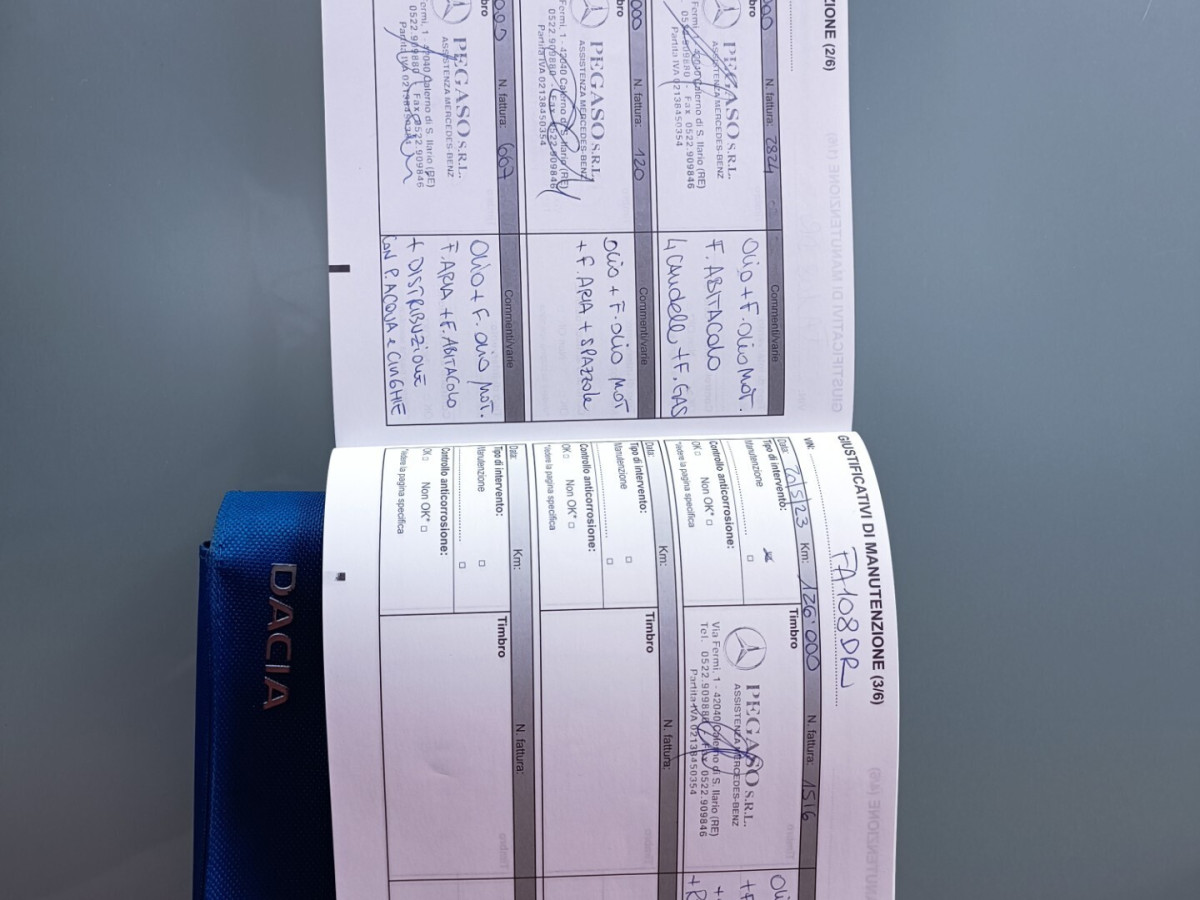 ZIONE (2/6)
000 N. fattura: 2824 Commenti/varie
mbro
PEGASO S.R.L.
ASSISTENZA MERCEDES-BENZ
Fermi, 1 - 42040 Calerno di S. Ilario (RE)
0522.909880 - Fax 0522.909846
Partita IVA 02138450354
Olio + F. Olio MOT.
F. ABITACOLO
4 CANDELE + F. GAS
000 N. fattura: 120 Commenti/varie
mbro
PEGASO S.R.L.
ASSISTENZA MERCEDES-BENZ
Fermi, 1 - 42040 Calerno di S. Ilario (RE)
0522.909880 - Fax 0522.909846
Partita IVA 02138450354
Olio + F. Olio MOT
+ F. ARIA + SPAZZOLE
000 N. fattura: 667 Commenti/varie
mbro
PEGASO S.R.L.
ASSISTENZA MERCEDES-BENZ
Fermi, 1 - 42040 Calerno di S. Ilario (RE)
0522.909880 - Fax 0522.909846
Partita IVA
Olio + F. Olio MOT.
F. ARIA + F. ABITACOLO
+ DISTRIBUZIONE
CON P. ACQUA e CINGHIE
GIUSTIFICATIVI DI MANUTENZIONE (3/6)
VIN: FA108DR
Data: /5/23 Km: 126'000 N. fattura: 1516
Tipo di intervento: Timbro
Manutenzione
Controllo anticorrosione:
OK Non OK*
*Vedere la pagina specifica
PEGASO S.R.L.
ASSISTENZA MERCEDES-BENZ
Via Fermi, 1 - 42040 Calerno di S. Ilario (RE)
Tel. 0522.909880 - Fax 0522.909846
Partita IVA 02138450354
Data: Km: N. fattura:
Tipo di intervento: Timbro
Manutenzione
Controllo anticorrosione:
OK Non OK*
*Vedere la pagina specifica
Data: Km: N. fattura:
Tipo di intervento: Timbro
Manutenzione
Controllo anticorrosione:
OK Non OK*
*Vedere la pagina specifica
DACIA